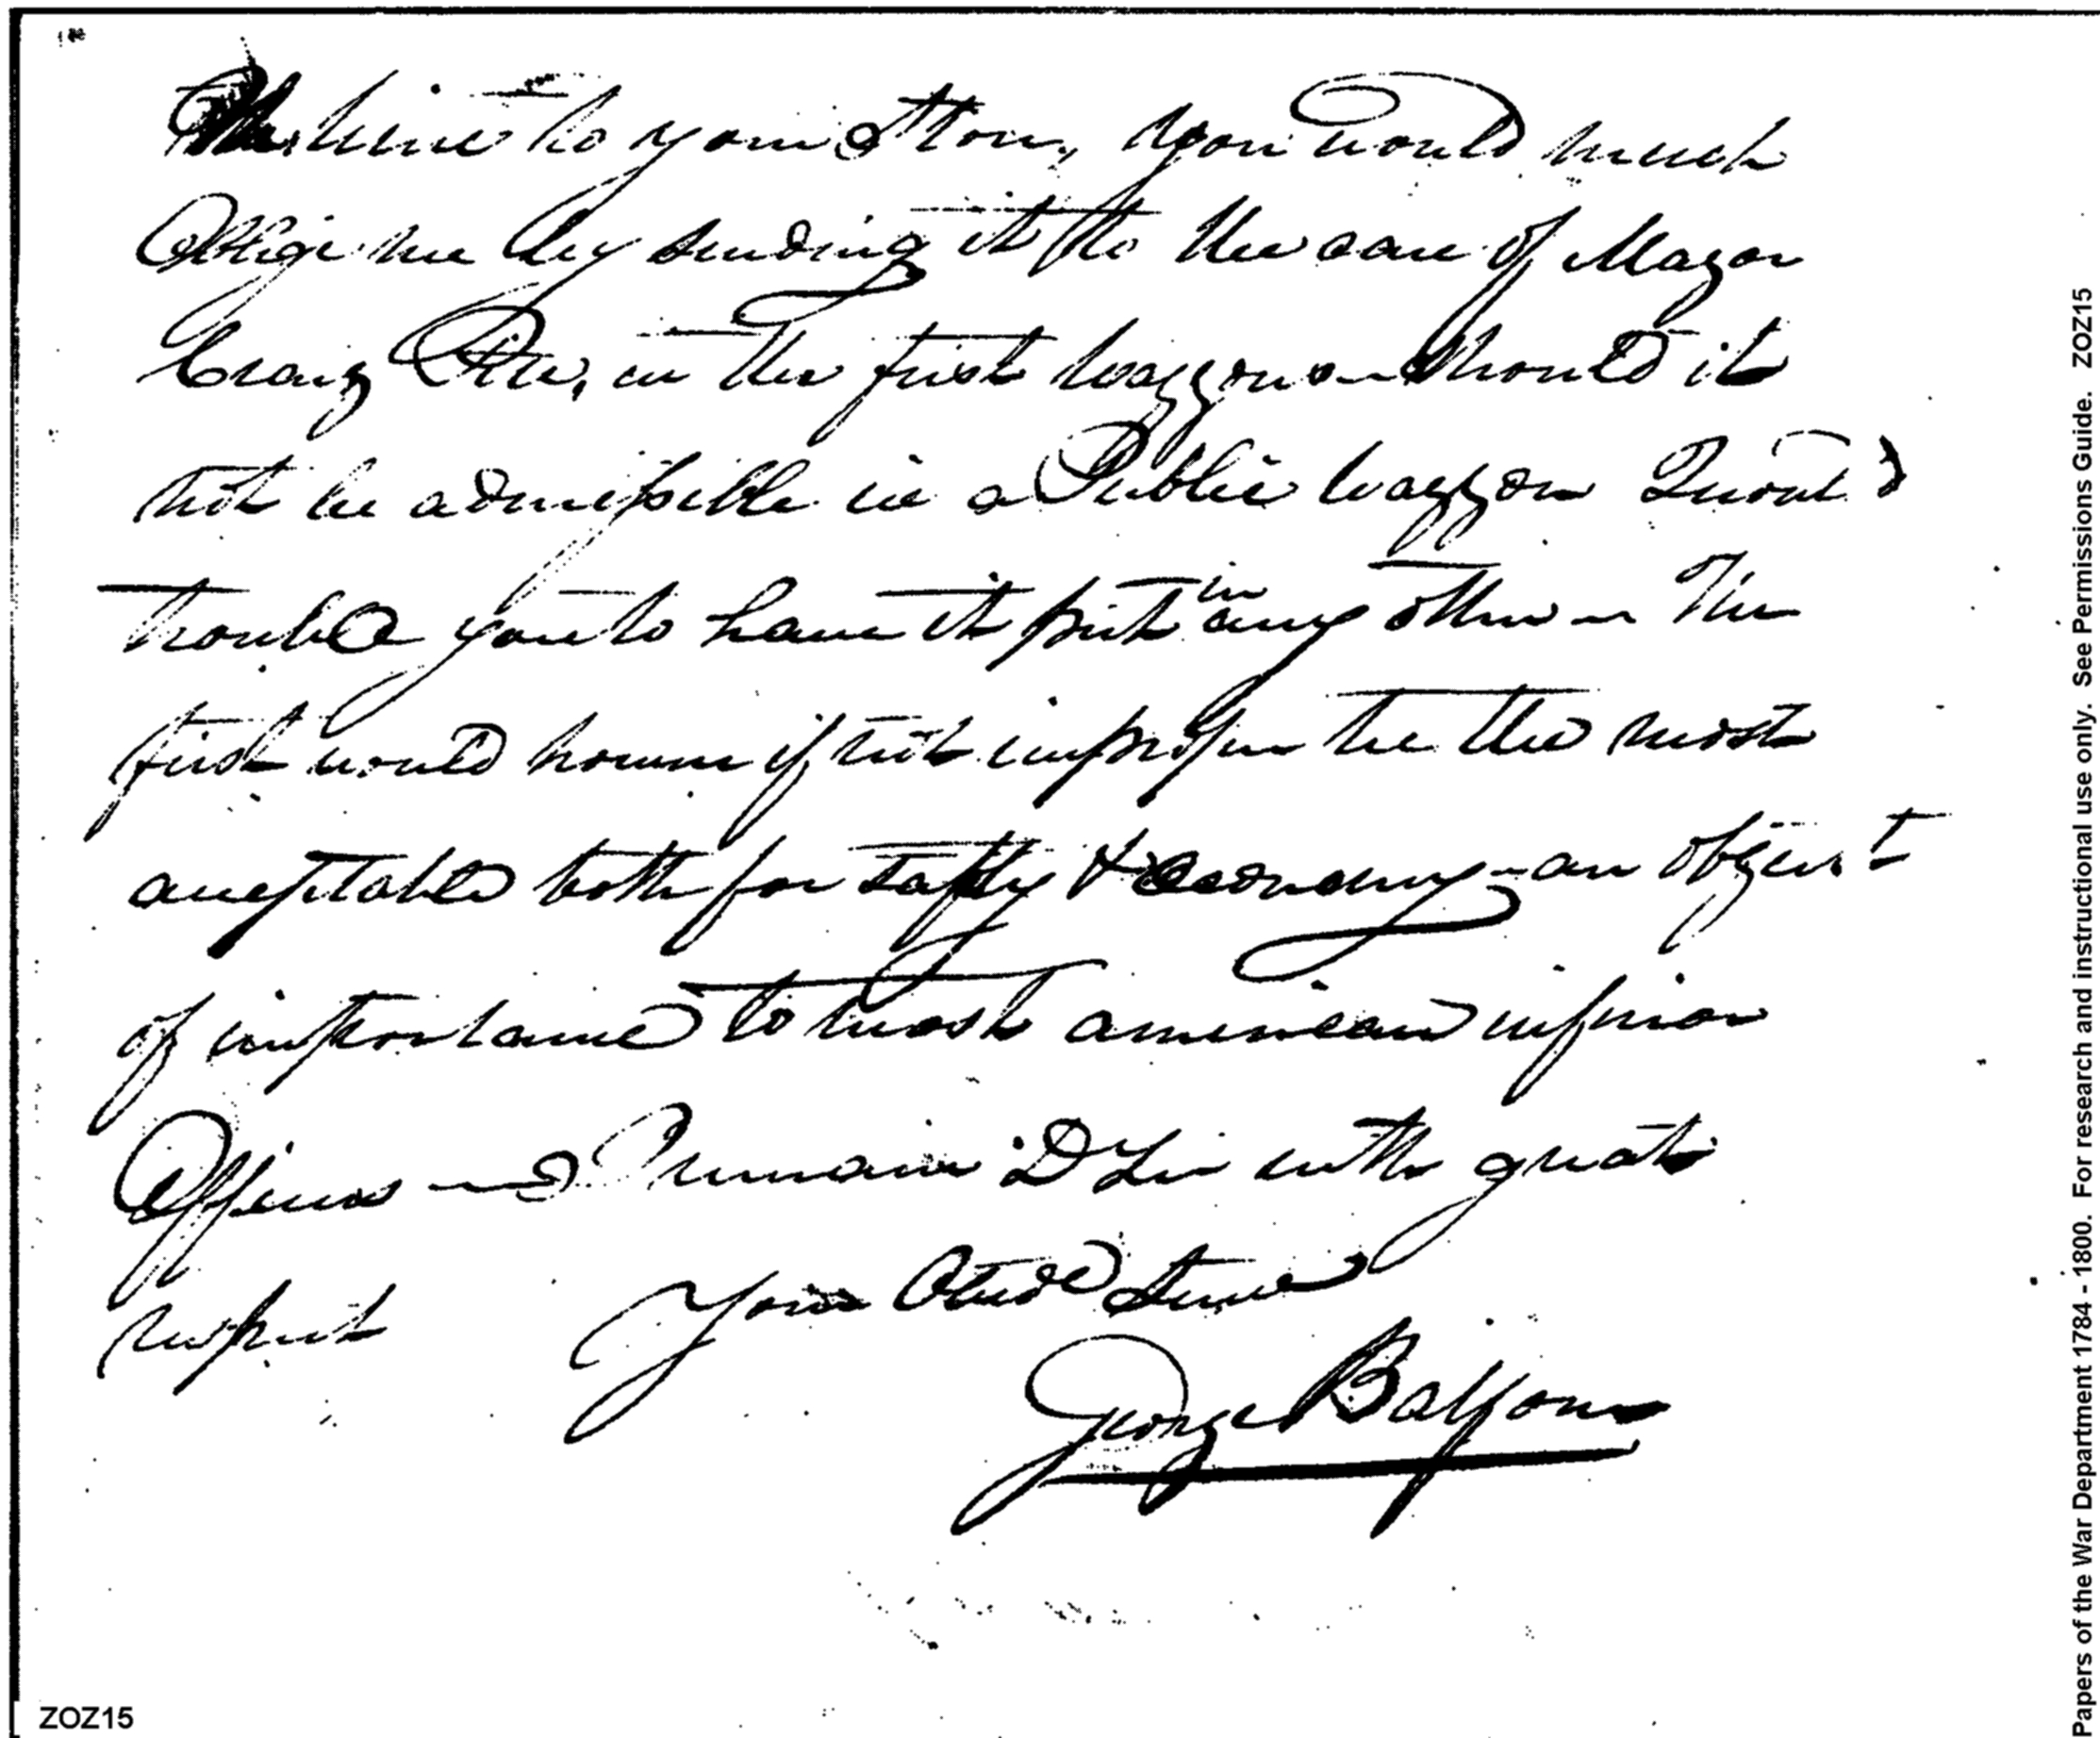 time to your Store, you would much
Oblige me by sending it to the care of Mayor
Craig Pitt, in the first waggon – Should it
not be admissible in a Public waggon I would
trouble you to have it put in any other – The
first would however if not improper be the most
acceptable both for safty & Economy – an object
of importance to most american inferior
Officers – I remain D Sir with great
respect Your Obed Serv
George Balfour
ZOZ15
Papers of the War Department 1784 - 1800. For research and instructional use only. See Permissions Guide. ZOZ15